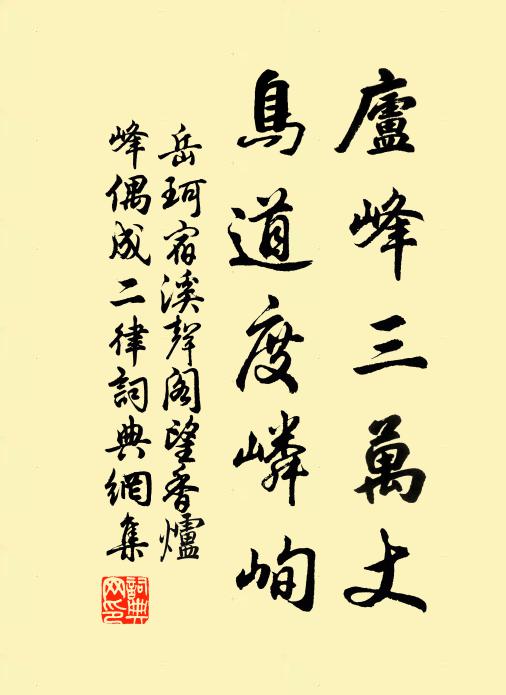 廬峰三萬丈
鳥道度嶙峋
岳珂宿溪聲閣望香爐
峰偶成二律詞典網集
詞典
网印